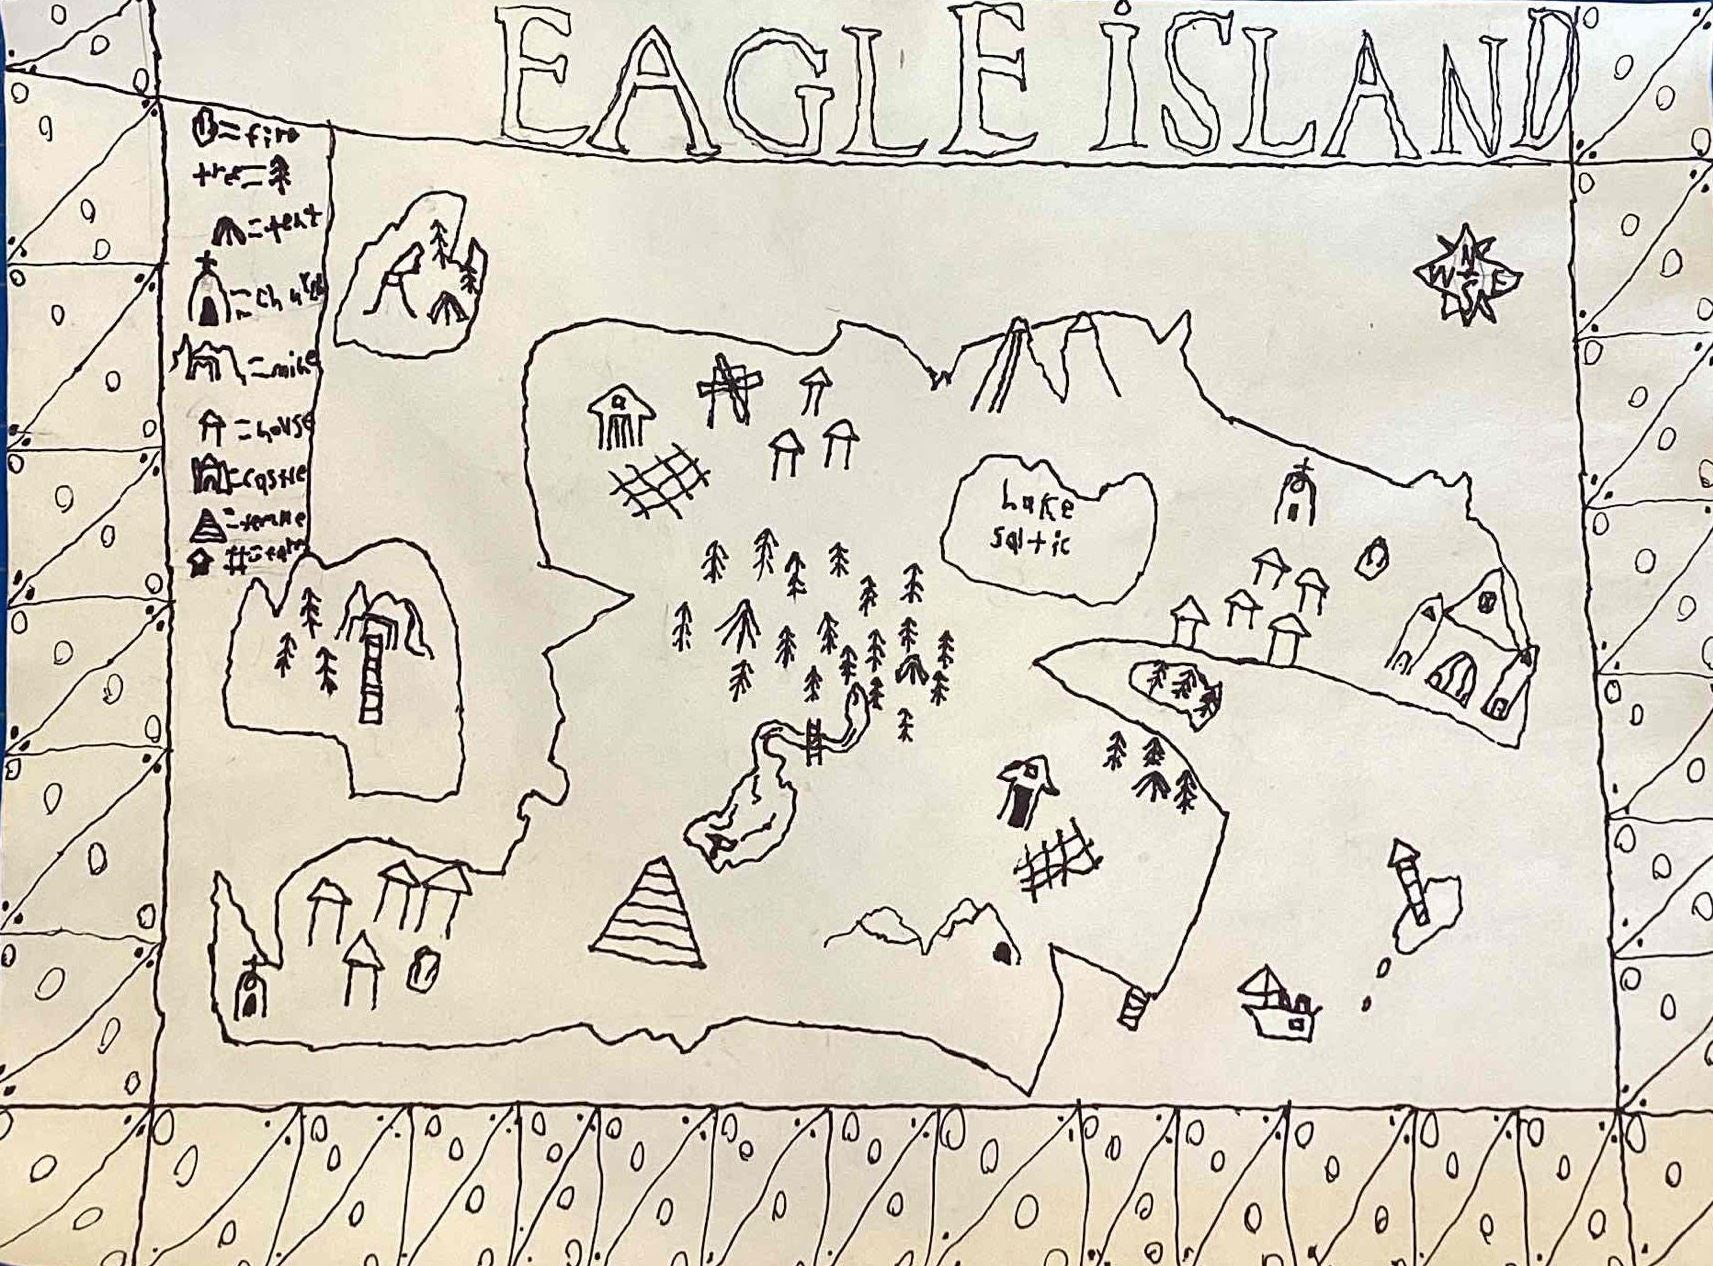 EAGLE ISLAND
= fire
tree =
= tent
= church
= mine
= house
= castle
= temple
# = farm
N
W E
S
Lake
saltic